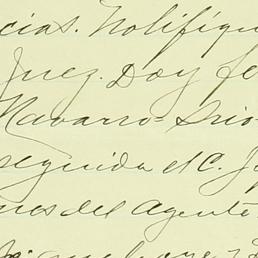 cias. Notifíqu
Juez. Doy fe
Navarro= Srio
seguida el C. J
nes del Agente